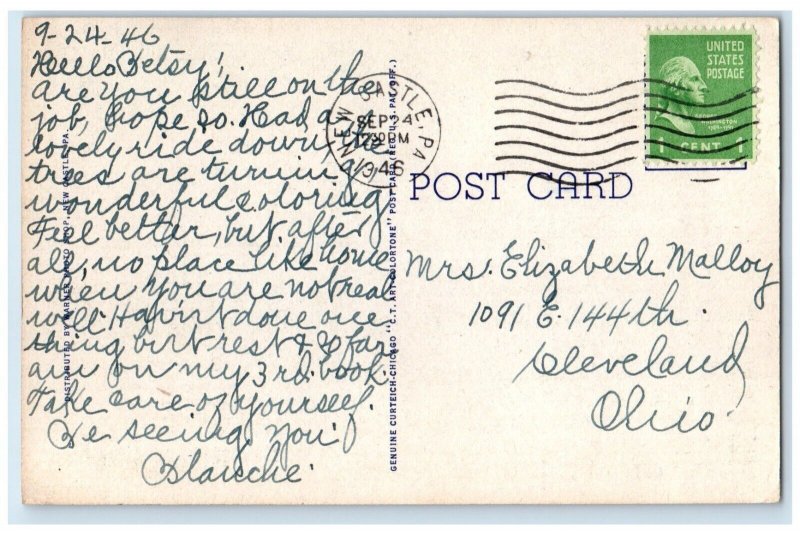 9-24-46
Hello Betsy!
Are you still on the
job, hope so. Had a
lovely ride down, the
trees are turning
wonderful coloring.
Feel better, but after
all, no place like home
when you are not real
well. Havint done one
thing but rest & so far
am on my 3rd. book.
Take care of yourself.
Be seeing you!
Blanche.
DISTRIBUTED BY WARNER PHOTO SHOP, NEW CASTLE, PA.
GENUINE CURTEICH-CHICAGO "C.T. ART-COLORTONE" POST CARD (REG. U.S. PAT. OFF.)
NEW CASTLE, PA.
SEP 24
PM
1946
UNITED
STATES
POSTAGE
GEORGE
WASHINGTON
1 CENT 1
POST CARD
Mrs. Elizabeth Malloy
1091 E. 144th.
Cleveland
Ohio.